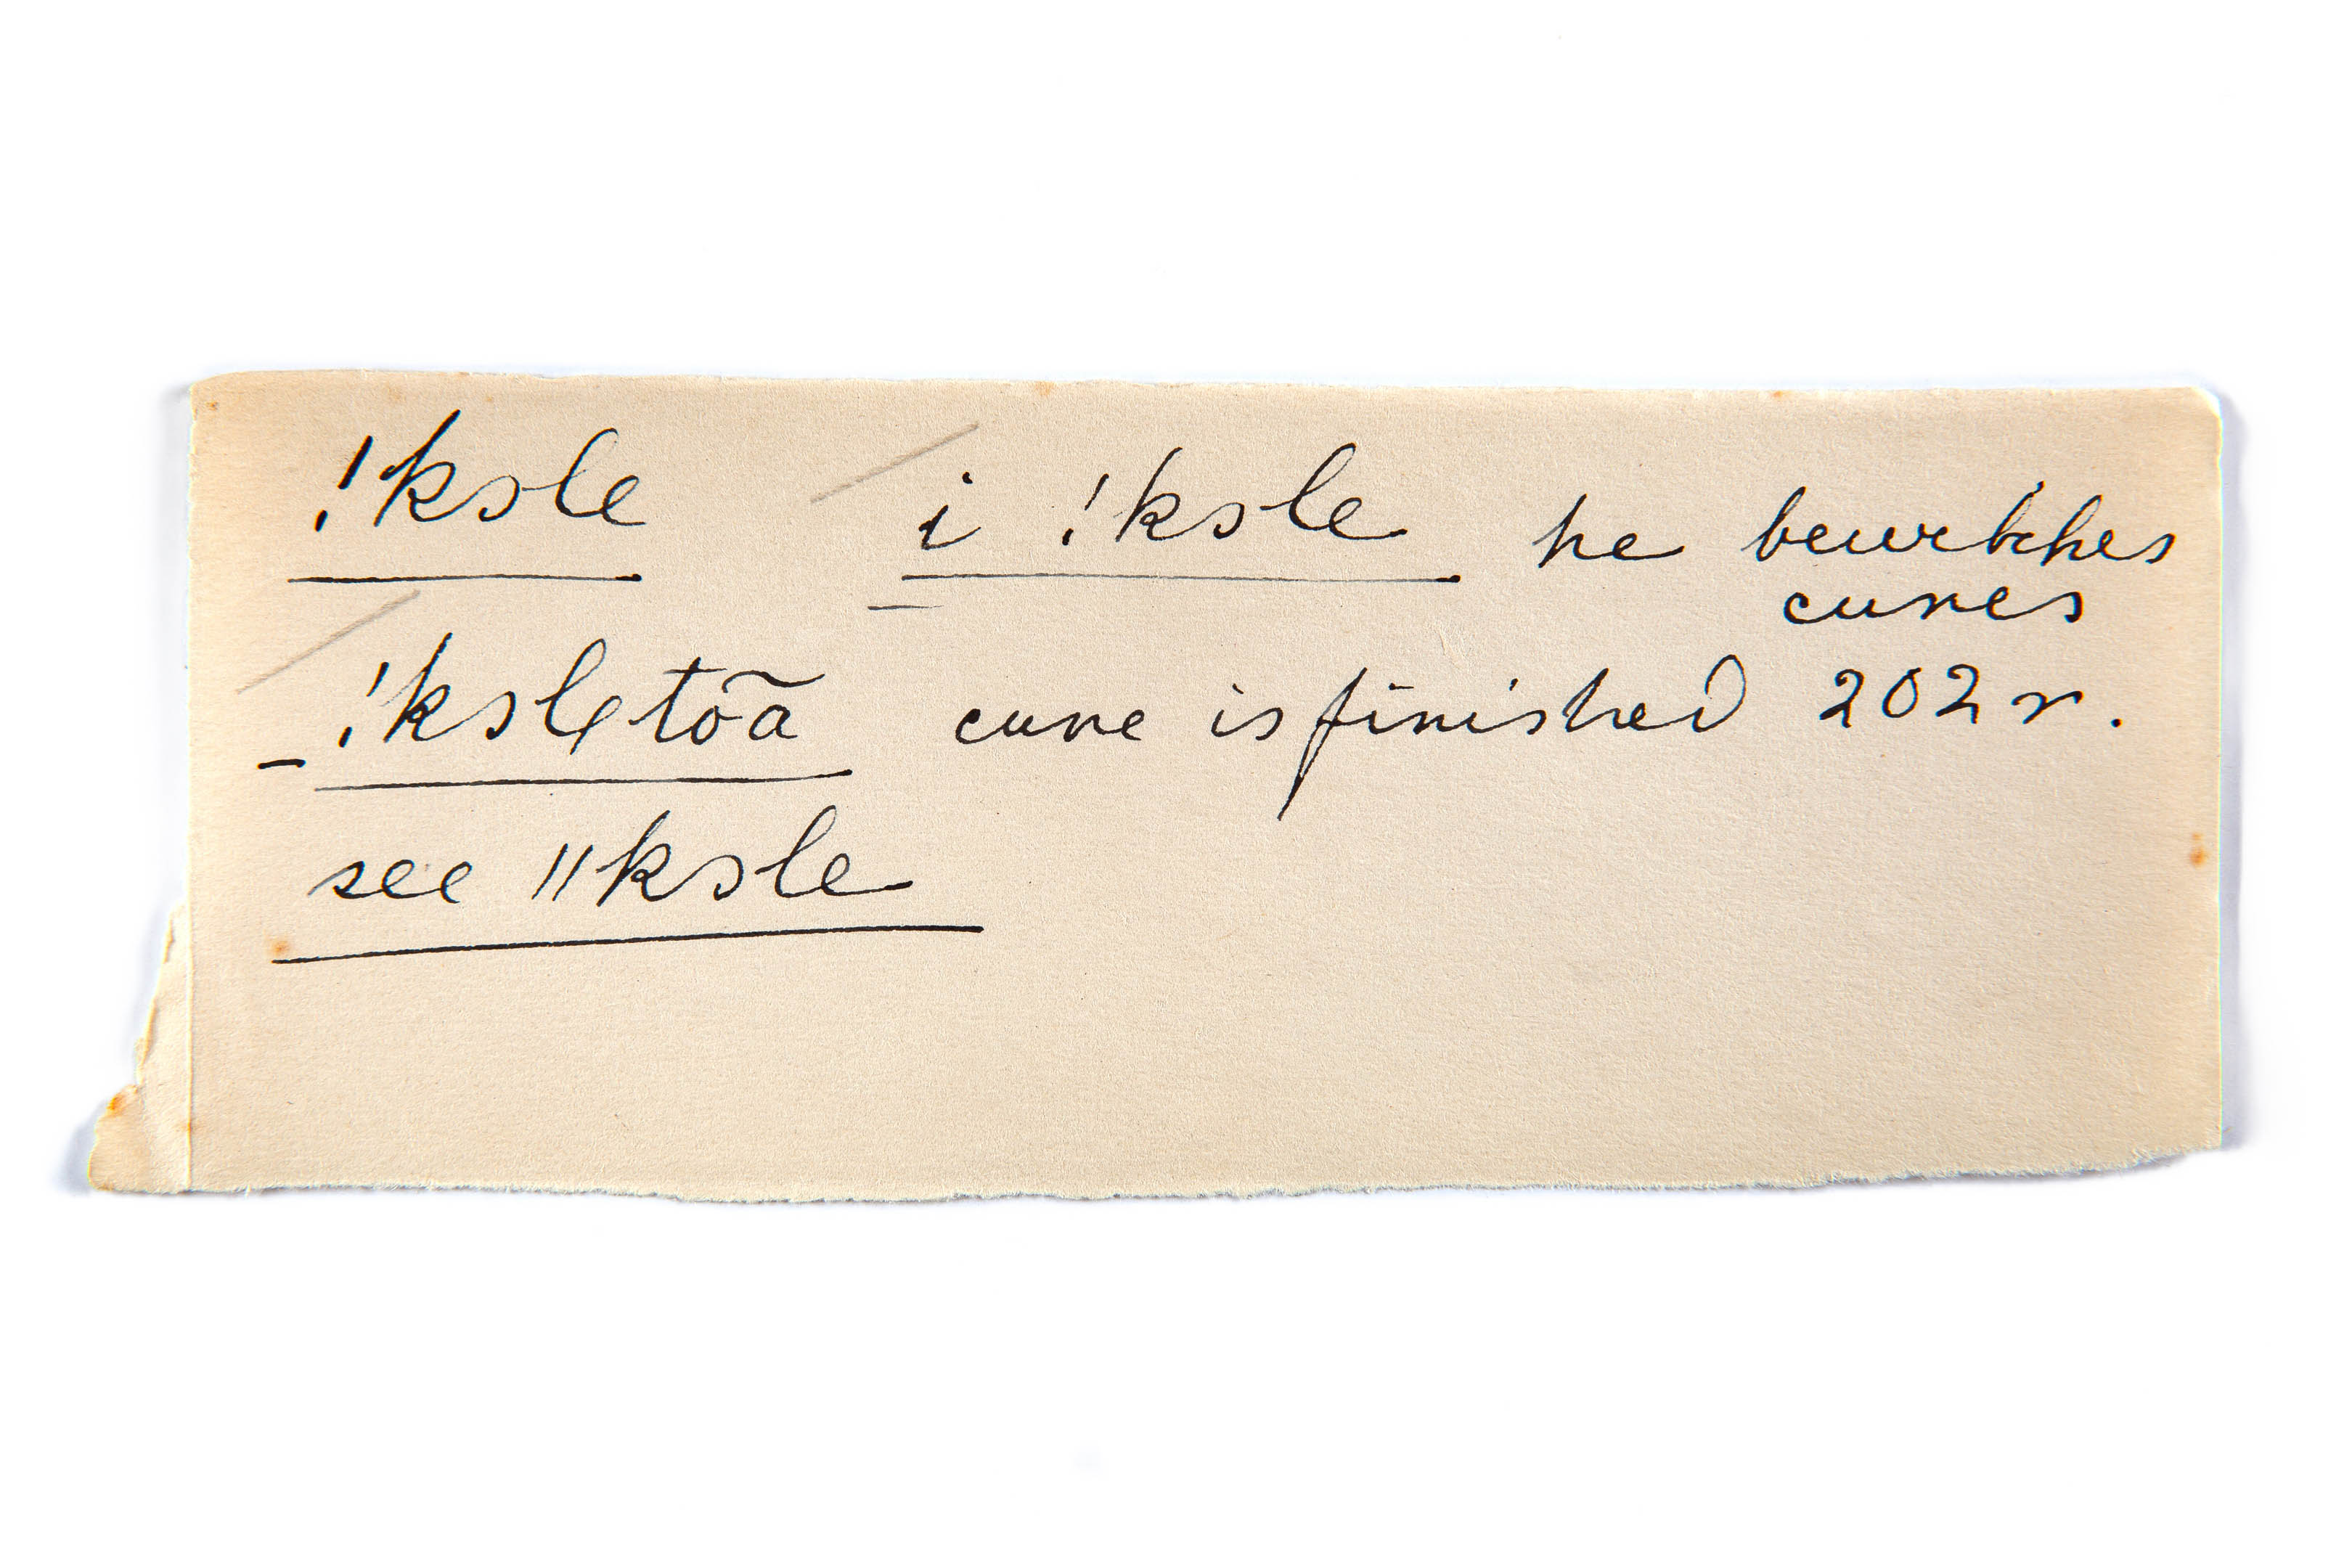 !ksle i !ksle he bewitches
cures
!kslętõã cure is finished 202 r.
see ǁksle